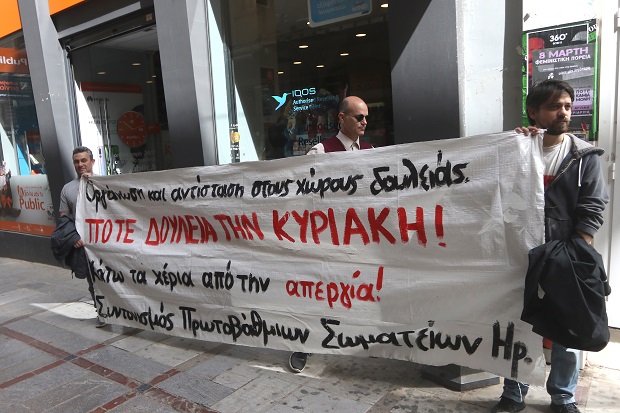 Οργάνωση και αντίσταση στους χώρους δουλειάς.
ΠΟΤΕ ΔΟΥΛΕΙΑ ΤΗΝ ΚΥΡΙΑΚΗ!
Κάτω τα χέρια από την απεργία!
Συντονισμός Πρωτοβάθμιων Σωματείων Ηρ.
IQOS
Authorised
Service
Public
360°
8 ΜΑΡΤΗ
ΦΕΜΙΝΙΣΤΙΚΗ ΠΟΡΕΙΑ